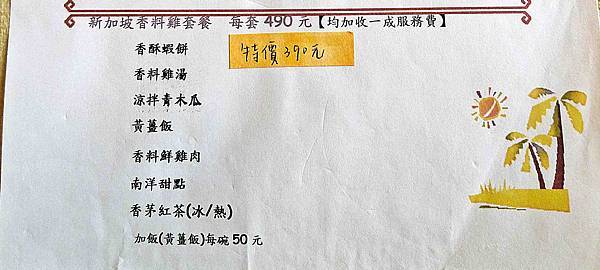 新加坡香料雞套餐 每套 490 元【均加收一成服務費】
特價390元
香酥蝦餅
香料雞湯
涼拌青木瓜
黃薑飯
香料鮮雞肉
南洋甜點
香茅紅茶(冰/熱)
加飯(黃薑飯)每碗 50 元